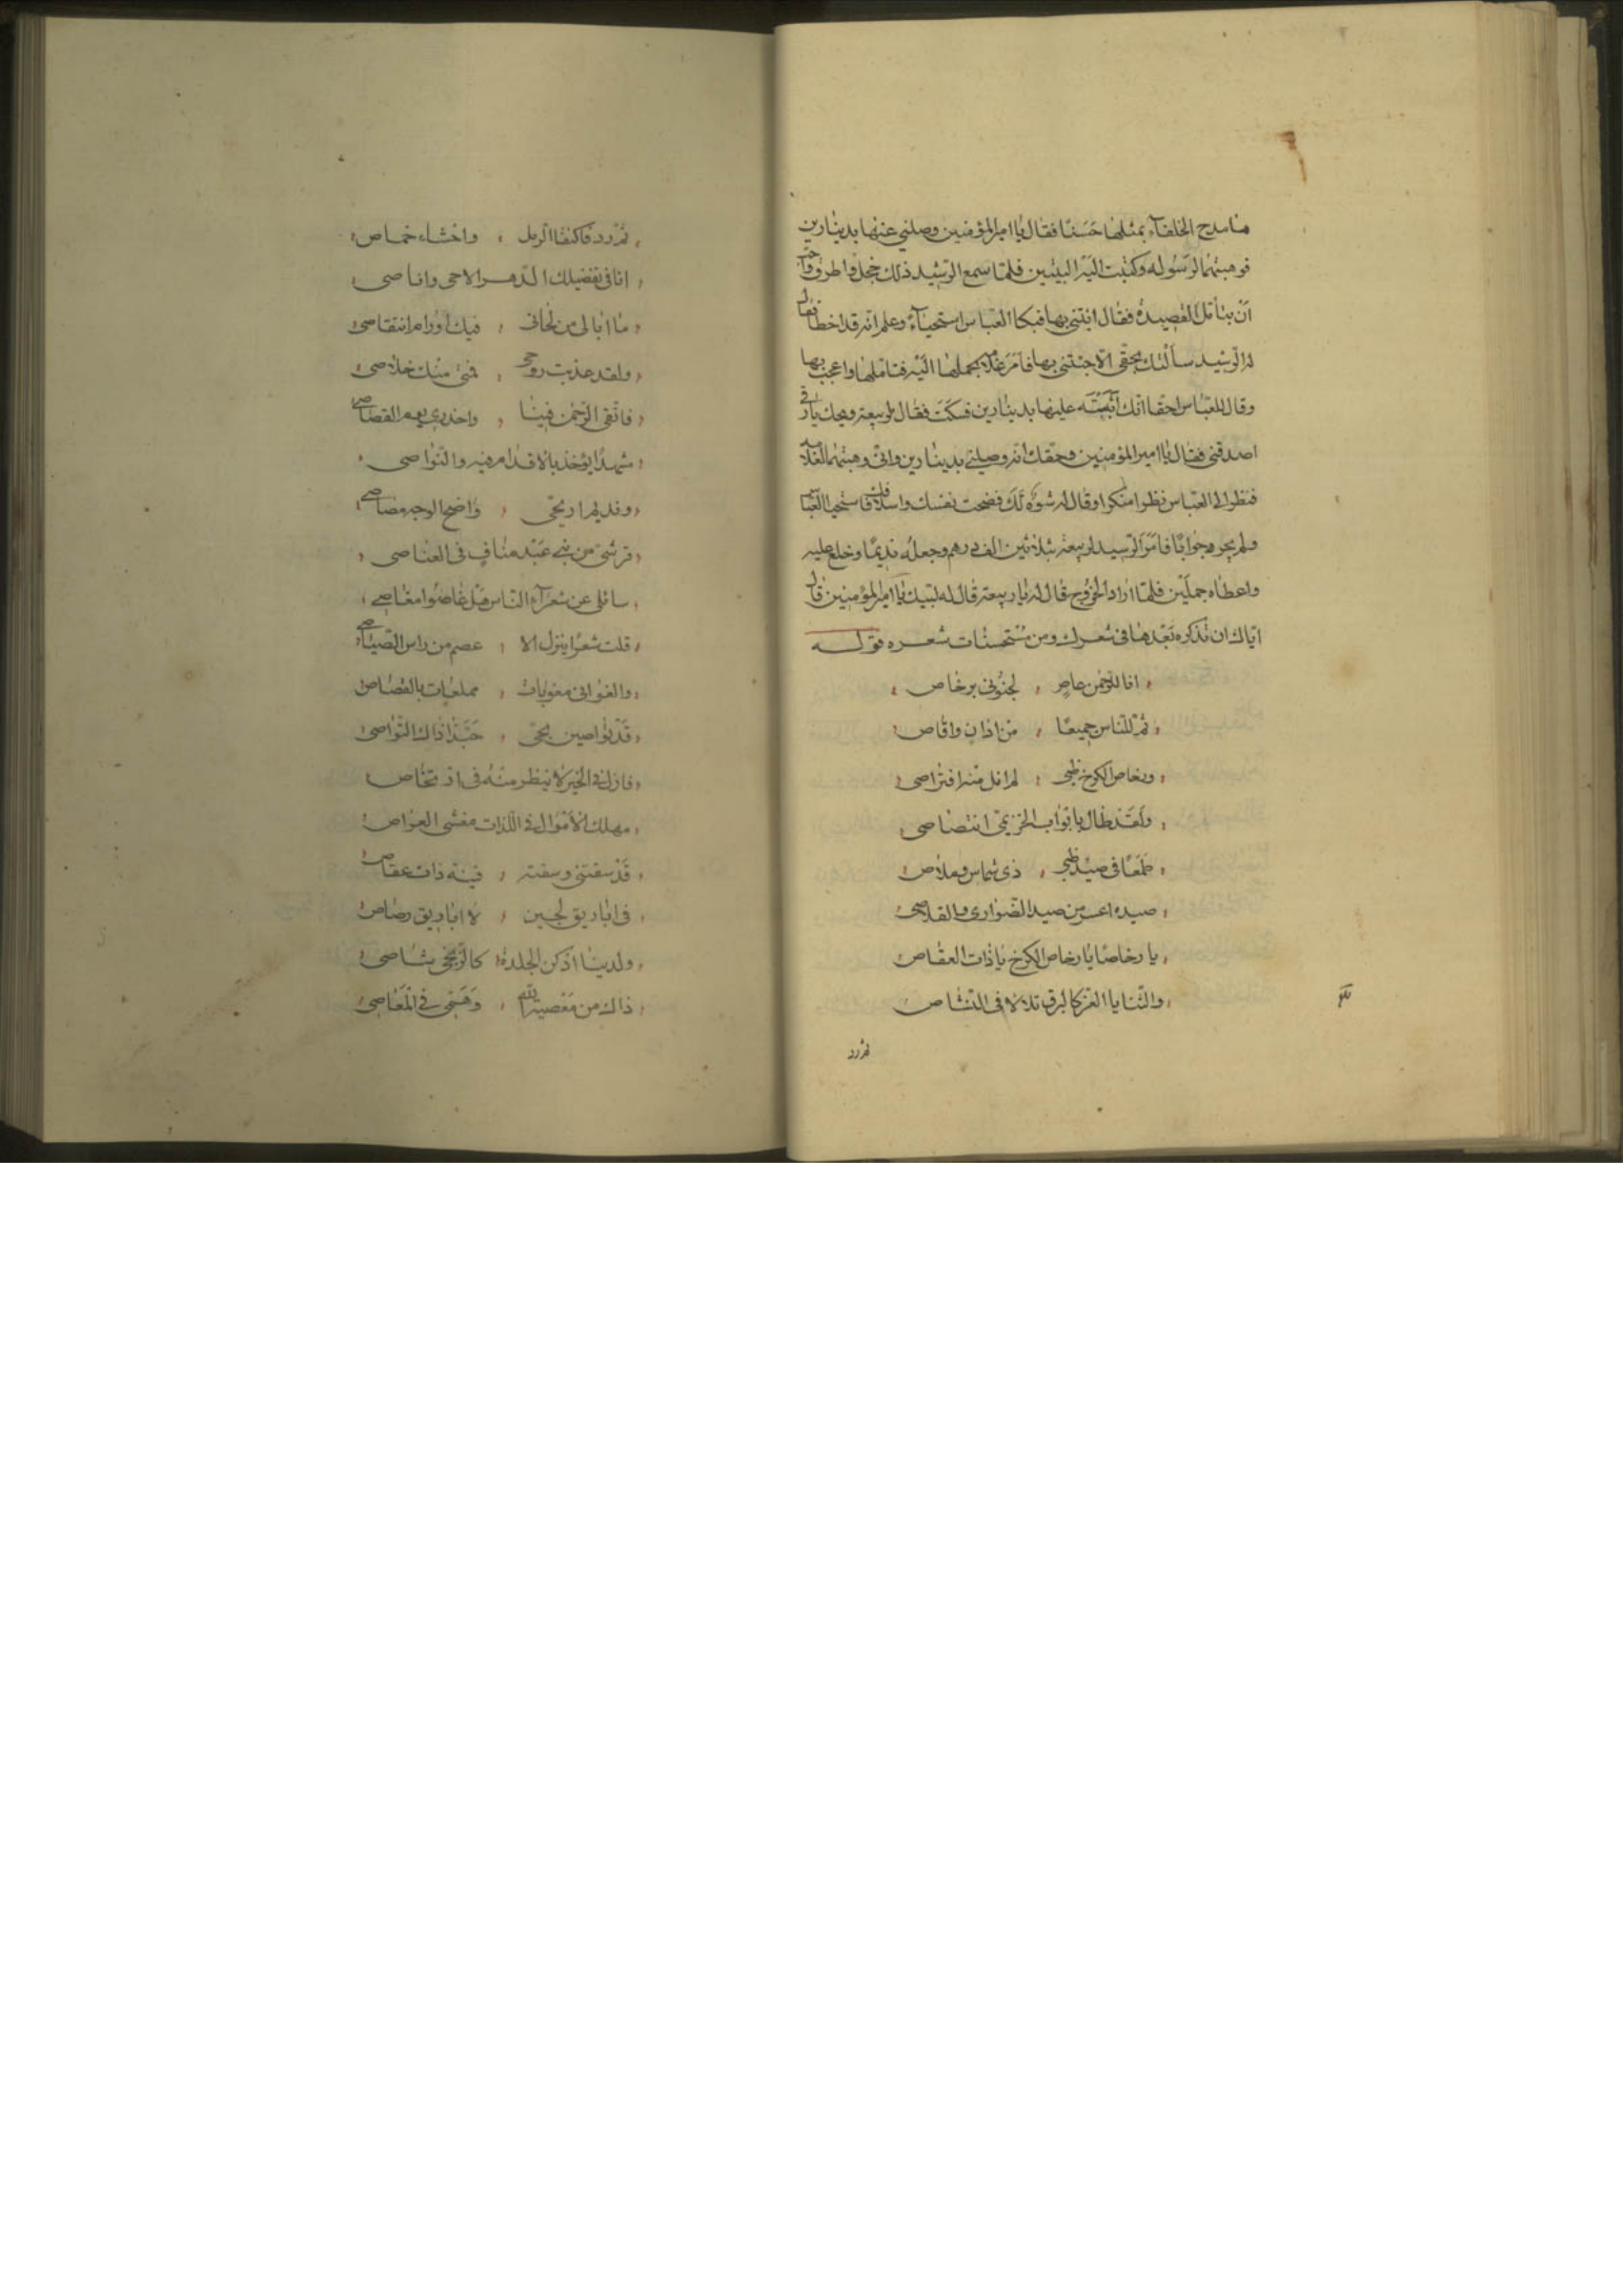 ما مدح الخلفآء بمثلها حَسَنا فقال يا امير المؤمنين وصلني عنها بدينارين
فوهبتهما لرسوله وكتبت اليه البيتين فلمّا سمع الرّشيد ذلك خجل واطرق واحبّ
انْ يتأمّل القصيدة فقال ائتني بها فبكا العبّاس استحيآءً وعلم انه قد اخطا فقال
له الرّشيد سألتك بحقّي الّا جئتني بها فامَرَ غلامه بحملها اليْه فتامّلها واعجب بها
وقال للعبّاس احقا انّك عليها بدينارين فسكَتَ فقال لربيعة ويحك يا رقي
اصدقني فقال يا امير المؤمنين وحقّك انّه وصلني بدينارين وانّي وهبتهما لغلامه
فنظر الى العبّاس نظرا منكرا وقال له سَوْءَه لَكَ فضحت نفسك واسلافك فاستحيا العبّاس
ولم يحر جوابًا فامَرَ الرّشيد لربيعة بثلاثين الف درهم وجعله نديمًا وخلع عليه
واعطاه جملَيْن فلمّا اراد الخروج قال له يا ربيعة قال له لبّيك يا امير المؤمنين قال
ايّاك ان تذكره بَعْدها في شعرك ومن مُسْتحسنات شعره قوله
انا للرّحمن عاصٍ لجنُوني برخاص
ثمّ للنّاس جميعًا من ادانٍ واقاص
ورخاص الكرخ ظبي لم انل منه افتراصي
ولَقَد طال بابواب الخزيميّ انتصاصي
طمَعًا في صيْد ظبي ذي شماس وملاص
صيده اعسر من صيد الضّواري والقلاصي
يا رخاصًا يا رخاص الكرخ يا ذات العقاص
والثّنايا الغرّ كالبرق تلالا في النّشاص
ثم رد
ثمّ ردفا كنقا الرّمل واحشاء خماص
انا في تفضيلك الدّهر الاحي واناصي
ما ابالي من لحاني فيك او رام انتقاصي
ولقد عذبت روحي فمتى منك خلاصي
فاتّقي الرّحمن فينا واحذري يوم القصاصي
مشهدًا يؤخذ بالاقدام فيه والنّواصي
ونديم اريحيّ واضح الوجه مصاصي
قرشيّ من بني عَبْد منافٍ في العناصي
سائلي عن شعرآء النّاس هَل غاصُوا مغاصي
قلت شعرًا ينزل الا عصم من راس الصّياصي
والغواني مغويات مملعبات بالقصاص
قَدْ تواصين بحبّي حَبَّذا ذاك التّواصي
فازل في الخير لا ينظر منه في ارتخاص
مهلك الأموال في اللّذات مغشي العراص
قَدْ سقتني وسقته قينة ذات عقاص
في اباريق لجين لا اباريق رصاص
ولدينا ادكن الجلدة كالزّنجي شاصي
ذاك من مَعْصية الله وَهَمّي في المَعَاصي